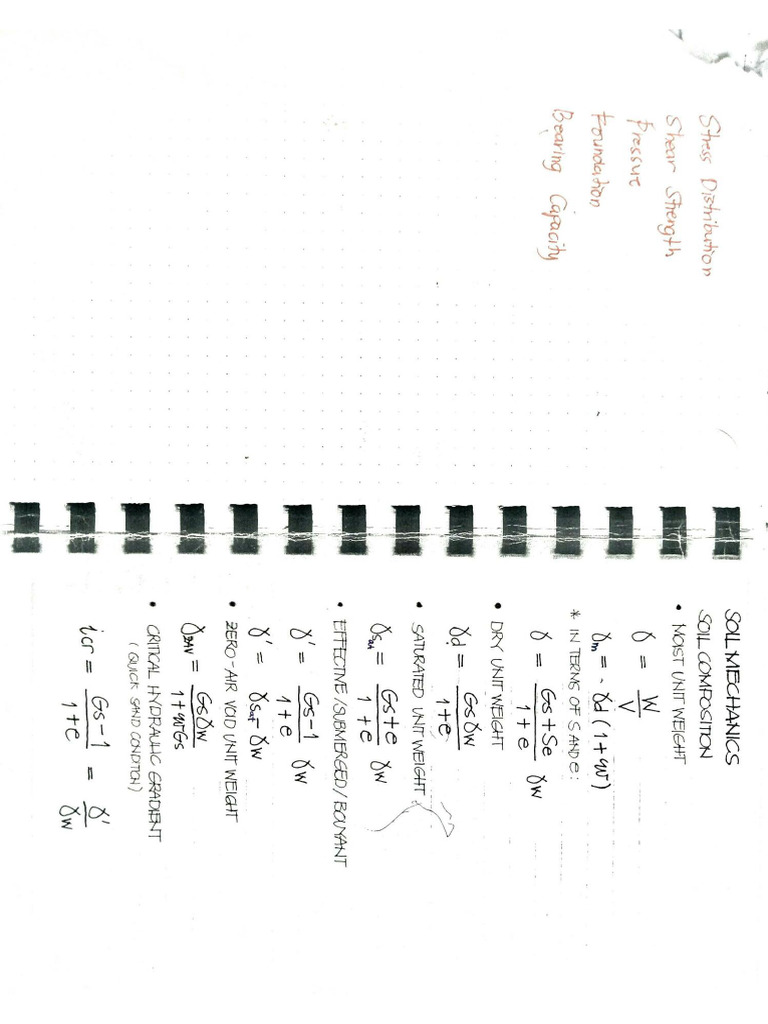 Stress Distribution
Shear Strength
Pressure
Foundation
Bearing Capacity
SOIL MECHANICS
SOIL COMPOSITION
• MOIST UNIT WEIGHT
γ = W/V
γm = γd (1+w)
* IN TERMS OF S AND e:
γ = (Gs+Se)/(1+e) γw
• DRY UNIT WEIGHT
γd = Gsγw/(1+e)
• SATURATED UNIT WEIGHT
γsat = (Gs+e)/(1+e) γw
• EFFECTIVE/SUBMERGED/BOUYANT
γ' = (Gs-1)/(1+e) γw
γ' = γsat - γw
• ZERO-AIR VOID UNIT WEIGHT
γZAV = Gsγw/(1+wGs)
• CRITICAL HYDRAULIC GRADIENT
(QUICK SAND CONDITION)
icr = (Gs-1)/(1+e) = γ'/γw